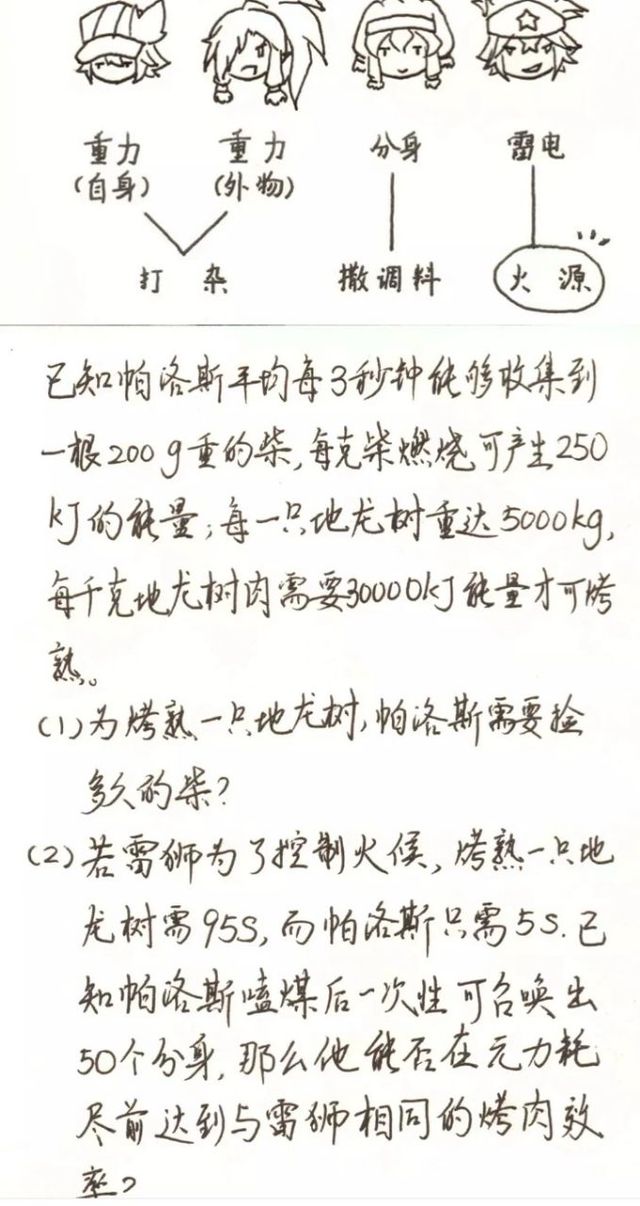 重力 重力 分身 雷电
(自身) (外物)
打杂 撒调料 火源
已知帕洛斯平均每3秒钟能够收集到
一根200g重的柴,每克柴燃烧可产生250
kJ的能量;每一只地龙树重达5000kg,
每千克地龙树肉需要30000kJ能量才可烤
熟。
(1)为烤熟一只地龙树,帕洛斯需要捡
多久的柴?
(2)若雷狮为了控制火候,烤熟一只地
龙树需95s,而帕洛斯只需5s.已
知帕洛斯嗑煤后一次性可召唤出
50个分身,那么他能否在元力耗
尽前达到与雷狮相同的烤肉效
率?